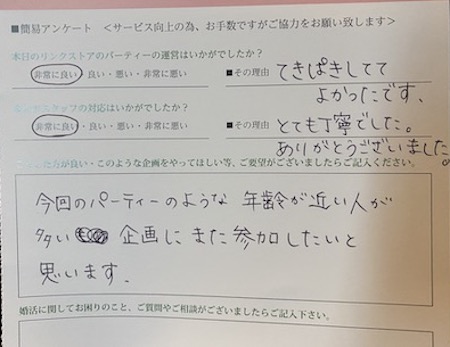 ■簡易アンケート <サービス向上の為、お手数ですがご協力をお願い致します>
本日のリンクストアのパーティーの運営はいかがでしたか?
非常に良い・良い・悪い・非常に悪い ■その理由 てきぱきしてて
よかったです、
スタッフの対応はいかがでしたか?
非常に良い・良い・悪い・非常に悪い ■その理由 とても丁寧でした。
ありがとうございました。
した方が良い・このような企画をやってほしい等、ご要望がございましたらご記入ください。
今回のパーティーのような 年齢が近い人が
多い 企画に、また参加したいと
思います、
婚活に関してお困りのこと、ご質問やご相談がございましたらご記入下さい。